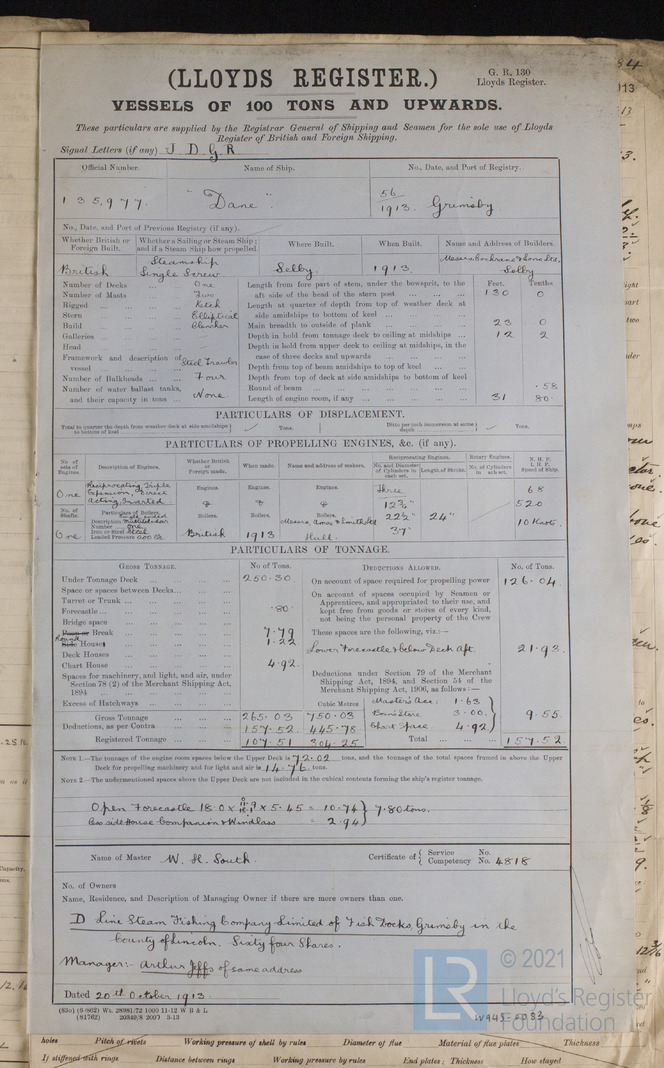 (LLOYDS REGISTER.)
G. R. 130
Lloyds Register.
VESSELS OF 100 TONS AND UPWARDS.
These particulars are supplied by the Registrar General of Shipping and Seamen for the sole use of Lloyds
Register of British and Foreign Shipping.
Signal Letters (if any) J D G R
Official Number. Name of Ship. No., Date, and Port of Registry.
135,977. "Dane" 56/1913. Grimsby
No., Date, and Port of Previous Registry (if any).
Whether British or Foreign Built. Whether a Sailing or Steam Ship; and if a Steam Ship how propelled. Where Built. When Built. Name and Address of Builders.
British Steamship Single Screw Selby. 1913. Messrs Cochrane & Sons Ltd, Selby
Number of Decks ... One
Number of Masts ... Two
Rigged ... Ketch
Stern ... Elliptical
Build ... Clencher
Galleries
Head
Framework and description of vessel ... Steel Trawler
Number of Bulkheads ... Four
Number of water ballast tanks, and their capacity in tons ... None
Feet. Tenths
Length from fore part of stem, under the bowsprit, to the aft side of the head of the stern post ... 130 0
Length at quarter of depth from top of weather deck at side amidships to bottom of keel
Main breadth to outside of plank ... 23 0
Depth in hold from tonnage deck to ceiling at midships ... 12 2
Depth in hold from upper deck to ceiling at midships, in the case of three decks and upwards
Depth from top of beam amidships to top of keel
Depth from top of deck at side amidships to bottom of keel
Round of beam ... ·58
Length of engine room, if any ... 31 80·
PARTICULARS OF DISPLACEMENT.
Total to quarter the depth from weather deck at side amidships to bottom of keel Tons. Ditto per inch immersion at same depth Tons.
PARTICULARS OF PROPELLING ENGINES, &c. (if any).
No. of sets of Engines. Description of Engines. Whether British or Foreign made. When made. Name and address of makers. Reciprocating Engines. Rotary Engines. N. H. P. I. H. P. Speed of Ship.
No. and Diameter of Cylinders in each set. Length of Stroke. No. of Cylinders in each set.
One Reciprocating Triple Expansion, Direct Acting Inverted Engines. Engines. Engines. Three 68
& & & 12¾" 520
No. of Shafts. Particulars of Boilers. Boilers. Boilers. Boilers. 22½" 24" 10 Knots
Description Single ended Multitubular
Number One
Iron or Steel Steel
Loaded Pressure 200 lbs
One British 1913 Messrs, Amos & Smith Ltd Hull. 37"
PARTICULARS OF TONNAGE.
GROSS TONNAGE. No of Tons. DEDUCTIONS ALLOWED. No. of Tons.
Under Tonnage Deck ... 250·30.
Space or spaces between Decks
Turret or Trunk
Forecastle ... ·80·
Bridge space
Poop or Break ... 7·79
Round Side Houses ... 1·22
Deck Houses
Chart House ... 4·92.
Spaces for machinery, and light, and air, under Section 78 (2) of the Merchant Shipping Act, 1894
Excess of Hatchways
Cubic Metres
Gross Tonnage ... 265·03 750·03
Deductions, as per Contra ... 157·52 445·78
Registered Tonnage ... 107·51 304·25
On account of space required for propelling power 126·04.
On account of spaces occupied by Seamen or Apprentices, and appropriated to their use, and kept free from goods or stores of every kind, not being the personal property of the Crew
These spaces are the following, viz:—
Lower Forecastle & below Deck Aft. 21·93.
Deductions under Section 79 of the Merchant Shipping Act, 1894, and Section 54 of the Merchant Shipping Act, 1906, as follows:—
Master's Acc: 1·63
Bosn's Store 3·00.
Chart Space 4·92
9·55.
Total ... 157·52.
NOTE 1.—The tonnage of the engine room spaces below the Upper Deck is 72·02 tons, and the tonnage of the total spaces framed in above the Upper
Deck for propelling machinery and for light and air is 14·76 tons.
NOTE 2.—The undermentioned spaces above the Upper Deck are not included in the cubical contents forming the ship's register tonnage.
Open Forecastle 18·0 x x 5·45 = 10·74 } 7·80 tons.
side House Companion & Windlass = 2·94
Name of Master W. H. South. Certificate of { Service No.
Competency No. 4818
No. of Owners
Name, Residence, and Description of Managing Owner if there are more owners than one.
D Line Steam Fishing Company Limited of Fish Docks, Grimsby in the
County of Lincoln. Sixty four Shares.
Manager:- Arthur Jeffs of same address
Dated 20th October 1913.
© 2021
LR
Lloyd's Register
Foundation
W945-0083
holes Pitch of rivets Working pressure of shell by rules Diameter of flue Material of flue plates Thickness
If stiffened with rings Distance between rings Working pressure by rules End plates: Thickness How stayed